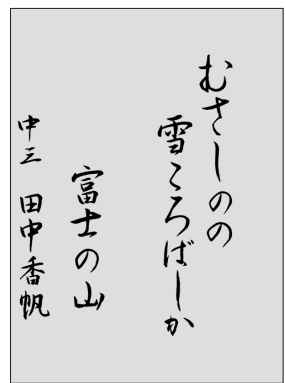 むさしのの
雪ころばしか
富士の山
中三 田中香帆